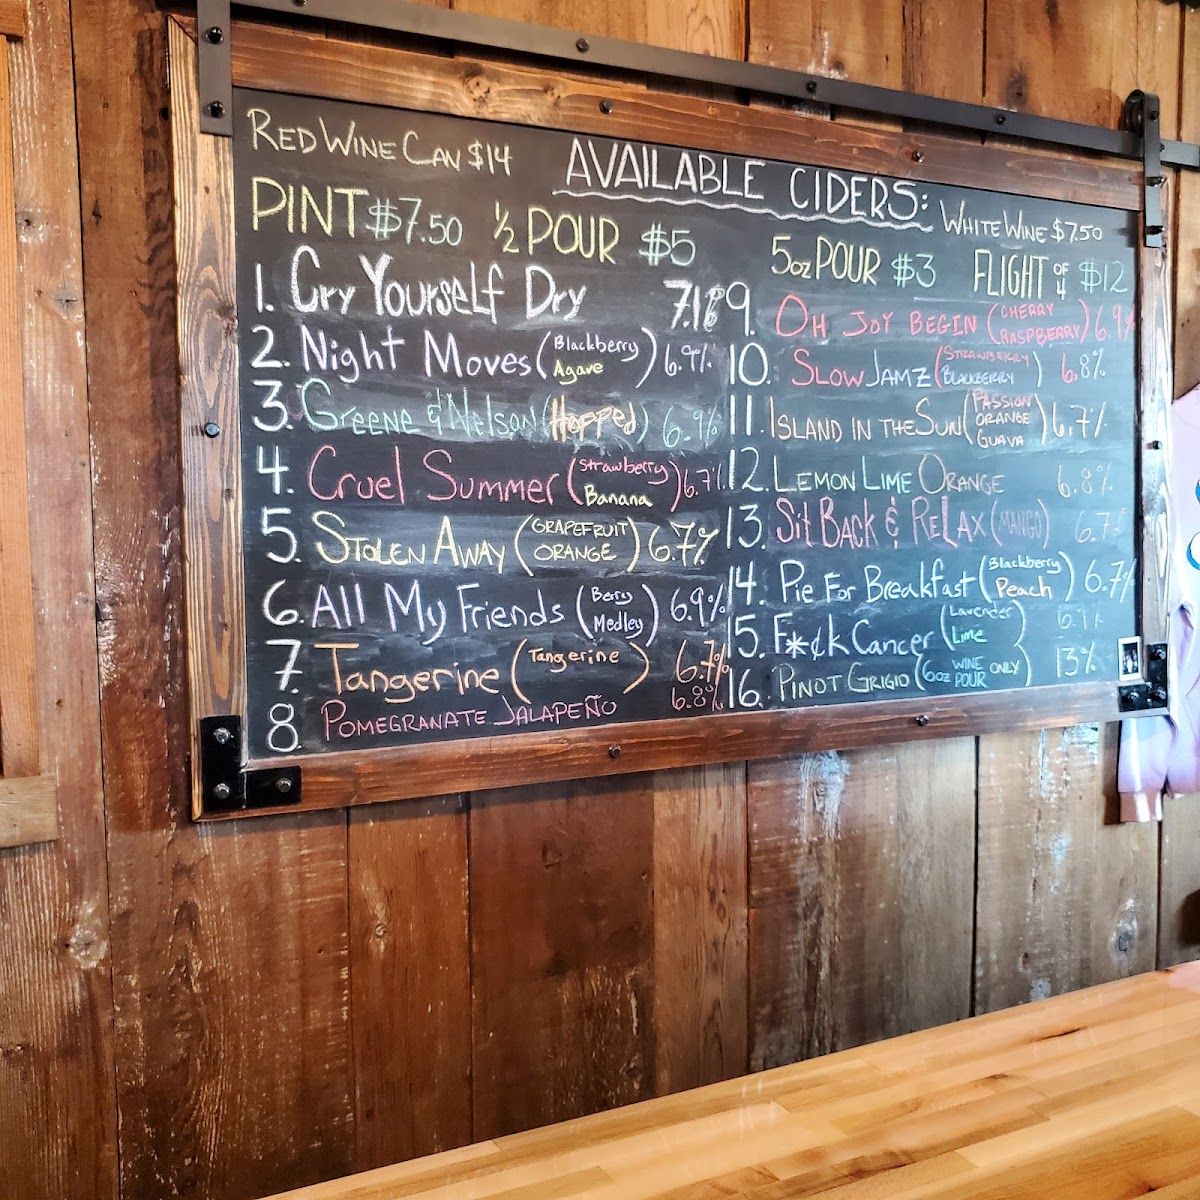 RED WINE CAN $14
AVAILABLE CIDERS:
WHITE WINE $7.50
PINT $7.50 ½ POUR $5
5oz POUR $3 FLIGHT OF 4 $12
1. Cry Yourself Dry 7.1%
2. Night Moves (Blackberry Agave) 6.9%
3. Greene & Nelson (Hopped) 6.9%
4. Cruel Summer (Strawberry Banana) 6.7%
5. STOLEN AWAY (GRAPEFRUIT ORANGE) 6.7%
6. All My Friends (Berry Medley) 6.9%
7. Tangerine (Tangerine) 6.7%
8. POMEGRANATE JALAPEÑO 6.8%
9. OH JOY BEGIN (CHERRY RASPBERRY) 6.9%
10. SLOW JAMZ (STRAWBERRY BLACKBERRY) 6.8%
11. ISLAND IN THE SUN (PASSION ORANGE GUAVA) 6.7%
12. LEMON LIME ORANGE 6.8%
13. Sit BACK & RELAX (MANGO) 6.7%
14. Pie For Breakfast (Blackberry Peach) 6.7%
15. F*¢k Cancer (Lavender Lime) 6.1%
16. PINOT GRIGIO (6oz WINE POUR ONLY) 13%